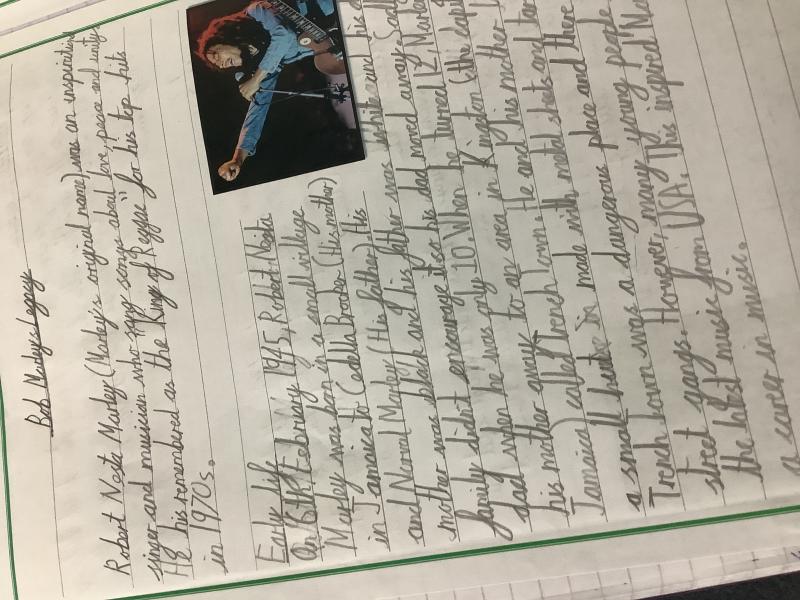 Bob Marley Legacy
Robert Nesta Marley (Marley's original name) was an inspirational
singer and musician who sang songs about love, peace and unity.
He his remembered as the "King of Reggae" for his top hits
in 1970s.
Early Life
On 6th February 1945, Robert Nesta
Marley was born in a small village
in Jamaica to Cedella Brooker (His mother)
and Norval Marley (His father). His
mother was black and his father was white and his
family didn't encourage it so his dad moved away. Sadly
dad when he was only 10. When he turned 12 Marley
his mother away to an area in Kingston (the
Jamaica) called Trench town. He and his mother
a small in made with metal sheets and
Trench town was a dangerous place and there
street gangs. However, many young people
the latest music from USA. This inspired
a career in music.